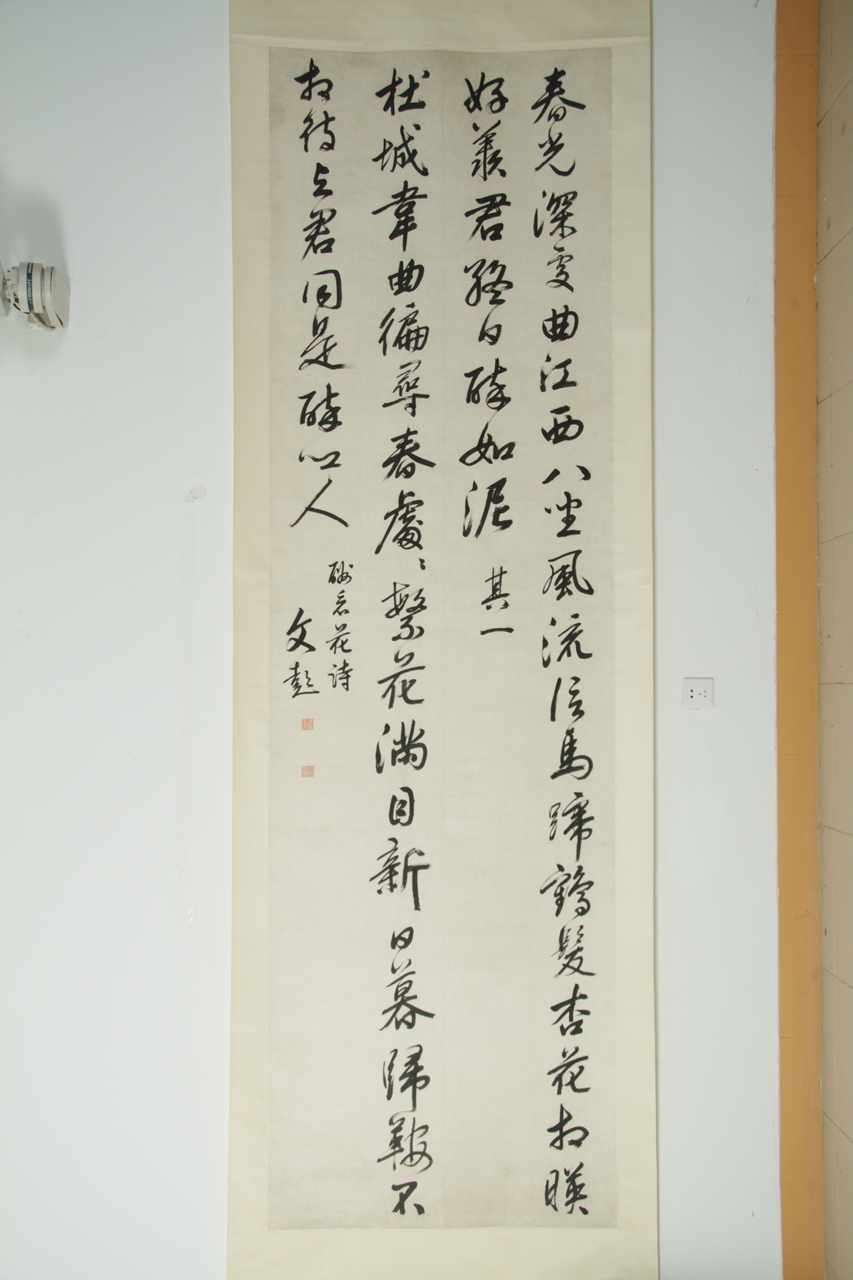 春光深處曲江西八坐風流信馬蹄鶴髮杏花相映
好羨君終日醉如泥 其一
杜城韋曲徧尋春處〻繁花滿目新日暮歸鞍不
相待與君同是醉鄉人
酬看花詩
文彭